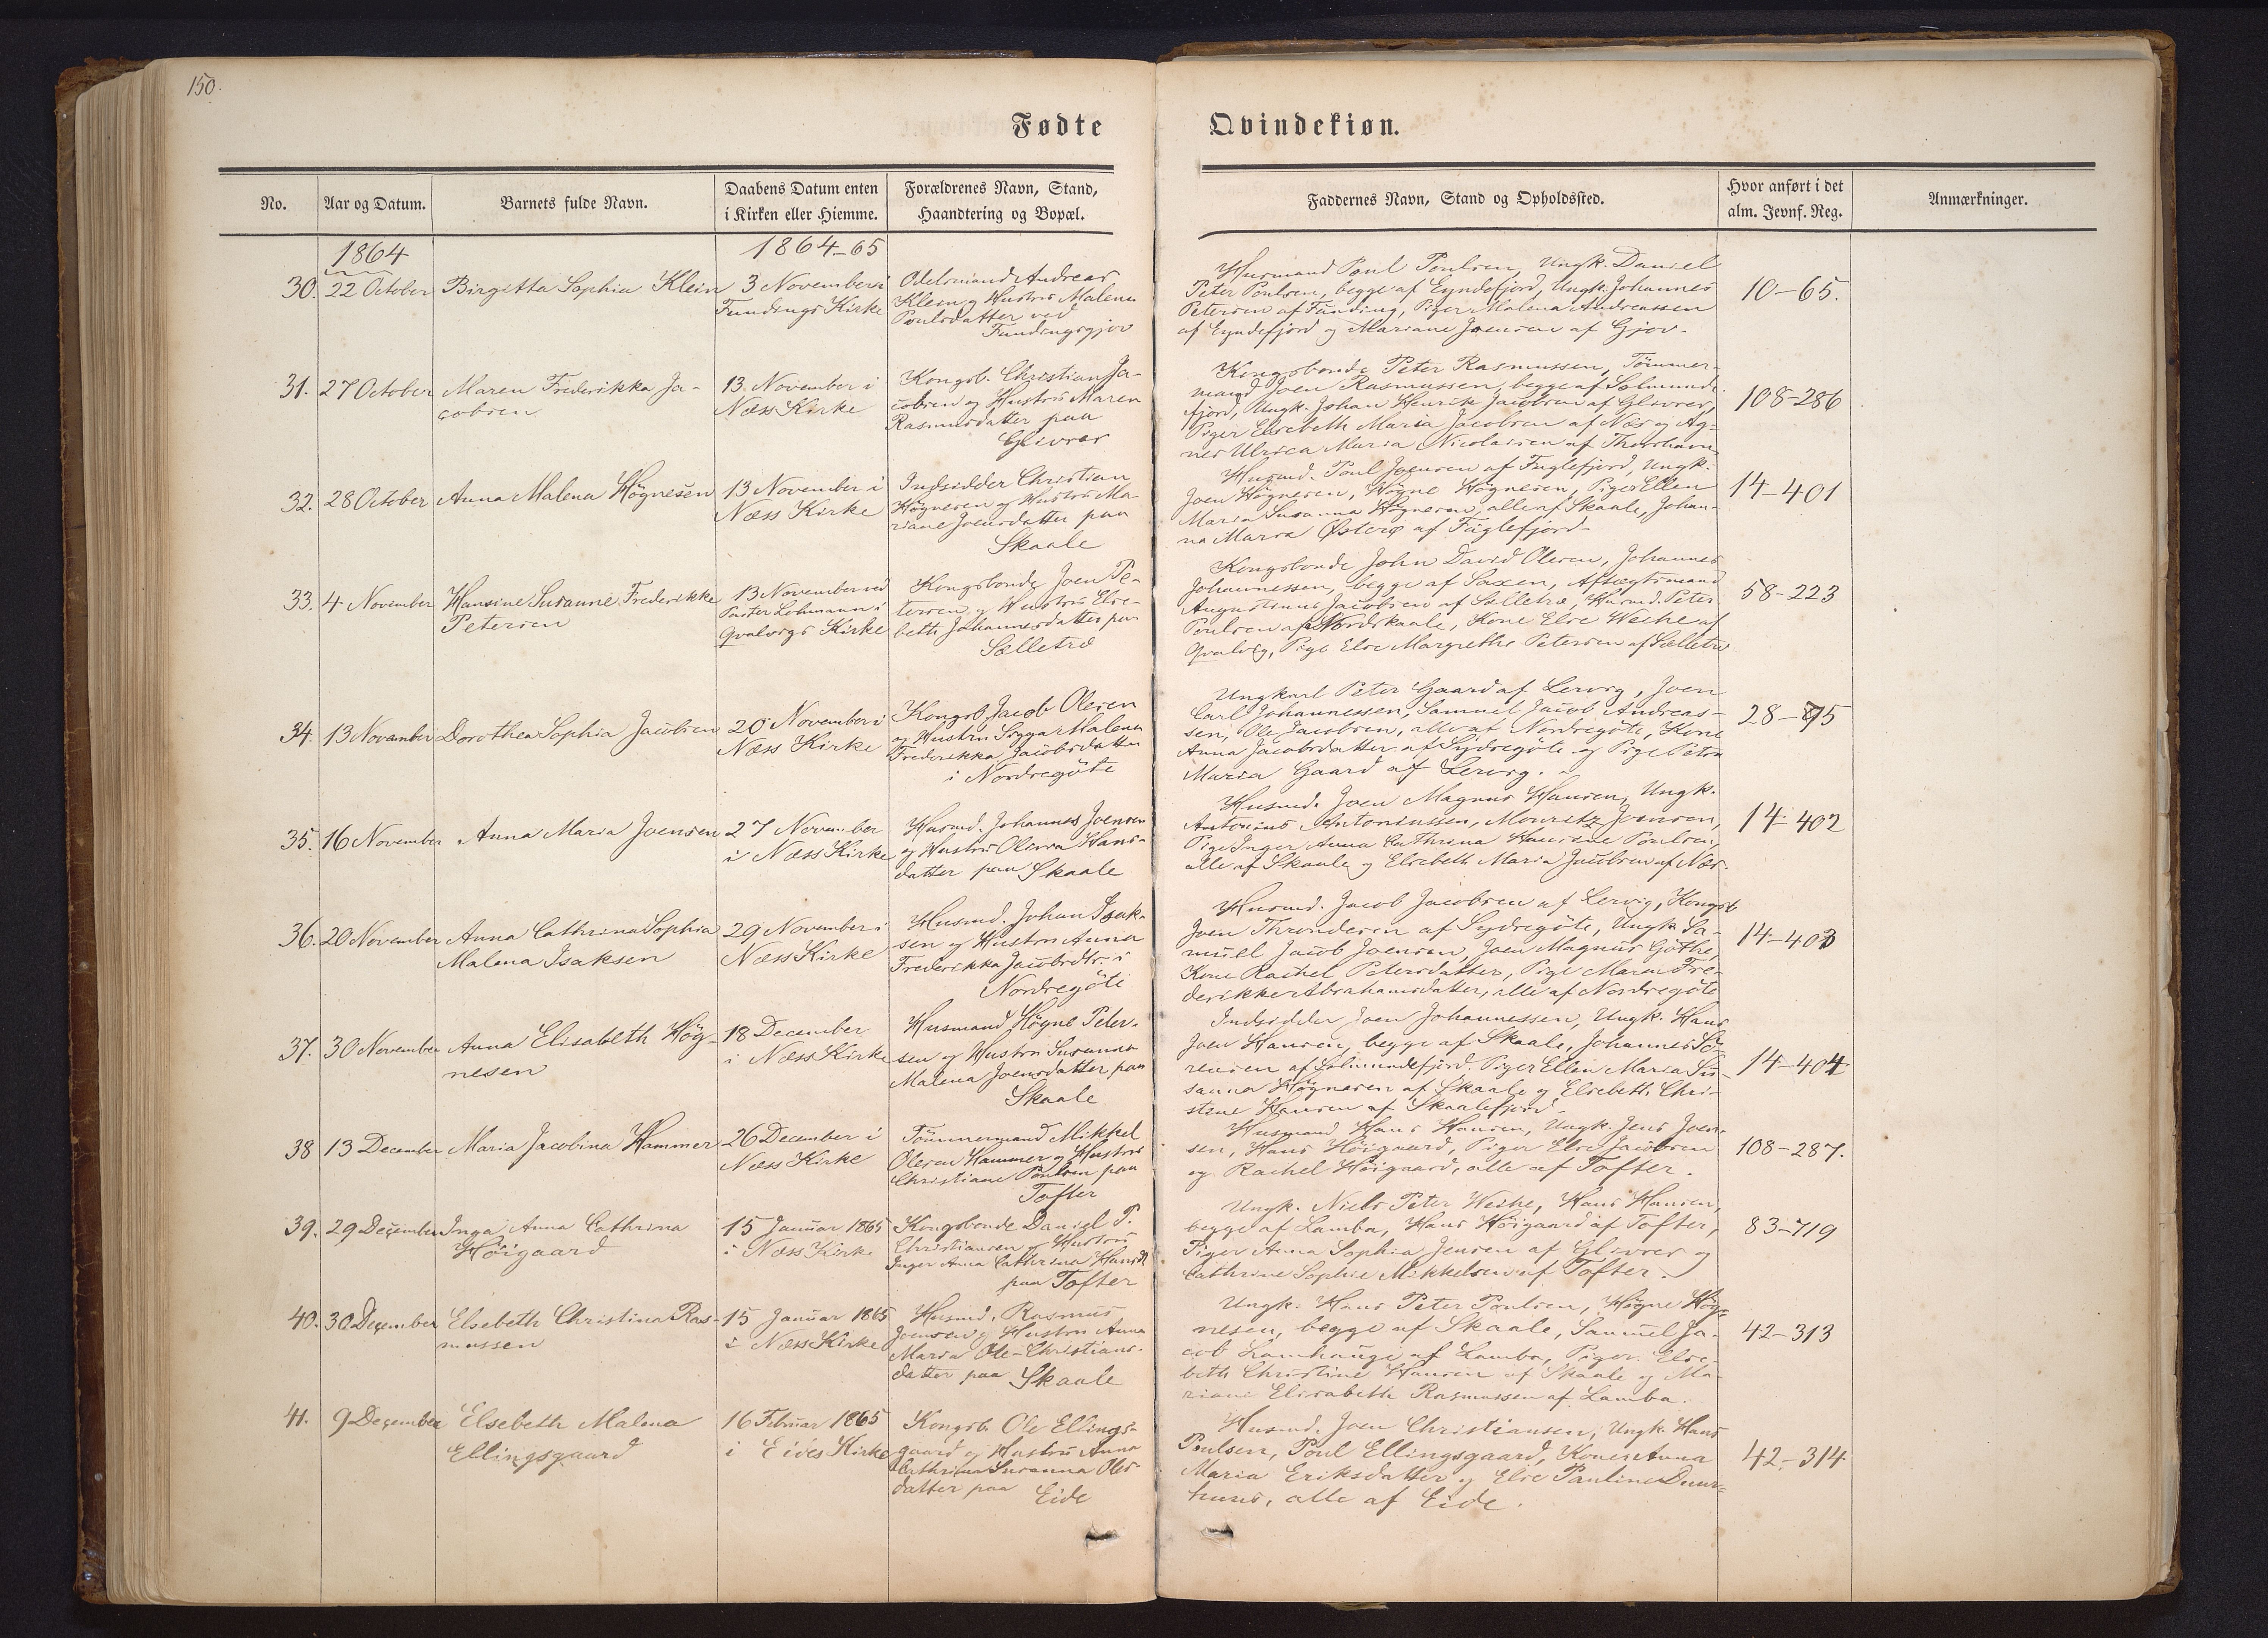 150.
Fødte
Qvindekiøn.
No.
Aar og Datum.
Barnets fulde Navn.
Daabens Datum enten
i Kirken eller Hiemme.
Forældrenes Navn, Stand,
Haandtering og Bopæl.
Faddernes Navn, Stand og Opholdssted.
Hvor anført i det
alm. Jevnf. Reg.
Anmærkninger.
1864
1864-65
30.
22 October
Birgitta Sophia Klein
3 November i
Fundings Kirke
Odelsmand Andreas
Klein og Hustru Malena
Poulsdatter ved
Fundingsgjov
Husmand Poul Poulsen, Ungk. Daniel
Peter Poulsen, begge af Eyndefjord, Ungk. Johannes
Petersen af Funding, Piger Malena Andreassen
af Eyndefjord og Mariane Joensen af Gjov.
10-65.
31.
27 October
Maren Frederikka Ja-
cobsen
13. November i
Næss Kirke
Kongsb. Christian Ja-
cobsen og Hustru Maren
Rasmusdatter paa
Glivrar
Kongsbonde Peter Rasmussen, Tömmer-
mand Joen Rasmussen, begge af Solmunde-
fjord, Ungk. Johan Henrik Jacobsen af Glivrar,
Piger Elsebeth Maria Jacobsen af Næs og Ag-
nes Ulrica Maria Nicolaisen af Thorshavn
108-286
32.
28 October
Anna Malena Högnesen
13 November i
Næss Kirke
Indsidder Christian
Högnesen og Hustru Ma-
riane Joensdatter paa
Skaale
Husmd. Poul Joensen af Fuglefjord, Ungk.
Joen Högnesen, Högne Högnesen, Piger Ellen
Maria Susanna Högnesen, alle af Skaale, Johan-
na Maria Østerø af Fuglefjord
14-401
33.
4 November
Hansine Susanne Frederikke
Petersen
13 November ved
Pastor Lohmann i
Qvalvigs Kirke
Kongsbonde Joen Pe-
tersen og Hustru Else-
beth Johannesdatter paa
Selletræ
Kongsbonde John David Olesen, Johannes
Johannessen, begge af Saxen, Aftægtsmand
Augustinus Jacobsen af Selletræ, Husmd. Peter
Poulsen af Nordskaale, Kone Else Weihe af
Qvalvig, Pige Else Margrethe Petersen af Selletræ
58-223
34.
13 November
Dorothea Sophia Jacobsen
20 November i
Næss Kirke
Kongsb. Jacob Olesen
og Hustru Sigga Malena
Frederikka Jacobsdatter
i Nordregöte
Ungkarl Peter Gaard af Lervig, Joen
Carl Johannessen, Samuel Jacob Andreas-
sen, Ole Jacobsen, alle af Nordregöte, Kone
Anna Jacobsdatter af Sydregöte og Pige Petra
Maria Gaard af Lervig.
28-95
35.
16 November
Anna Maria Joensen
27 November
i Næss Kirke
Husmd. Johannes Joensen
og Hustru Olevva Hans-
datter paa Skaale
Husmd. Joen Magnus Hansen, Ungk.
Antonius Antoniussen, Mouritz Joensen,
Pige Inger Anna Cathrina Hansine Poulsen,
alle af Skaale og Elsebeth Maria Jacobsen af Næs.
14-402
36.
20 November
Anna Cathrina Sophia
Malena Isaksen
29 November i
Næss Kirke
Husmd. Johan Isak-
sen og Hustru Anna
Frederikka Jacobsdtr. i
Nordregöte
Husmd. Jacob Jacobsen af Lervig, Kongsb
Joen Throndesen af Sydregöte, Ungk. Sa-
muel Jacob Joensen, Joen Magnus Göthe,
Kone Rachel Petersdatter, Pige Maren Fre-
derikke Abrahamsdatter, alle af Nordregöte
14-403
37.
30 November
Anna Elisabeth Hög-
nesen
18 December
i Næss Kirke
Husmand Högne Peter-
sen og Hustru Susanna
Malena Joensdatter paa
Skaale
Indsidder Joen Johannessen, Ungk. Hans
Joen Hansen, begge af Skaale, Johannes Sö-
rensen af Solmundefjord. Piger Ellen Maria Su-
sanna Högnesen af Skaale og Elsebeth Chri-
stine Hansen af Skaalefjord.
14-404
38
13 December
Maria Jacobina Hammer
26 December i
Næss Kirke
Tömmermand Mikkel
Olesen Hammer og Hustru
Christiane Poulsen paa
Tofter
Husmand Hans Hansen, Ungk. Jens Joen-
sen, Hans Höigaard, Piger Else Jacobsen
og Rachel Höigaard, alle af Tofter.
108-287.
39.
29 December
Inga Anna Cathrina
Höigaard
15 Januar 1865
i Næss Kirke
Kongsbonde Daniel P.
Christiansen og Hustru
Inger Anna Cathrina Hansdt
paa Tofter
Ungk. Niels Peter Weihe, Hans Hansen,
begge af Lamba, Hans Höigaard af Tofter,
Piger Anna Sophia Jensen af Glivrar og
Cathrine Sophie Mikkelsen af Tofter.
83-719
40.
30 December
Elsebeth Christina Ras-
mussen
15 Januar 1865
i Næss Kirke
Husmd. Rasmus
Joensen og Hustru Anna
Maria Ole-Christians-
datter paa Skaale
Ungk. Hans Peter Poulsen, Högne Hög-
nesen, begge af Skaale, Samuel Ja-
cob Lamhauge af Lamba, Piger Else-
beth Christine Hansen af Skaale og Ma-
riane Elisabeth Rasmussen af Lamba.
42-313
41.
9 December
Elsebeth Malena
Ellingsgaard
16 Februar 1865
i Eides Kirke
Kongsb. Ole Ellings-
gaard og Hustru Anna
Cathrina Susanna Ols-
datter paa Eide
Husmd. Joen Christiansen, Ungk. Hans
Poulsen, Poul Ellingsgaard, Koner Anna
Maria Eriksdatter og Else Pauline Duur-
huus, alle af Eide.
42-314